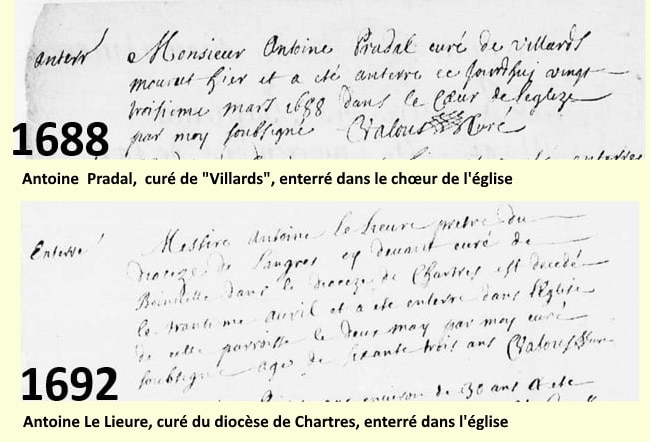 anterr
Monsieur Antoine Pradal curé de villards
mourut hier et a eté anterre ce jourdhuj vingt
troisieme mars 1688 dans le Cœur de l'eglize
par moy soubsigné Chalous Curé
1688
Antoine Pradal, curé de "Villards", enterré dans le chœur de l'église
Enterré
Messire Antoine le lieure pretre du
dioceze de Langres cy devant curé de
dans le dioceze de Chartres est decedé
le trantieme auril et a ete enterre dans l'Eglise
de cette parroisse le deus may par moy curé
soubsigne age de soisante trois ans Chalous Cure
1692
Antoine Le Lieure, curé du diocèse de Chartres, enterré dans l'église